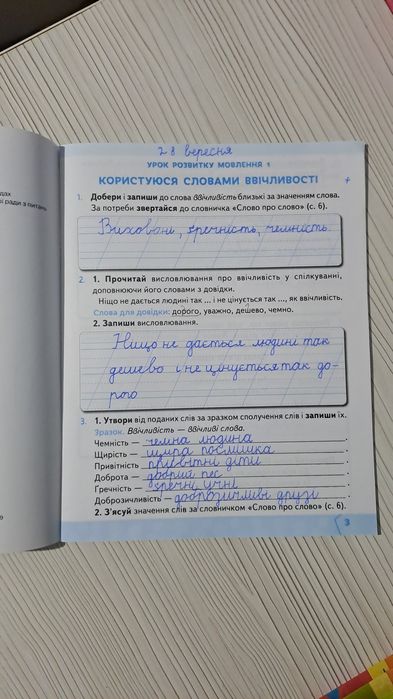 дах.
ї ради з питань
28 вересня
УРОК РОЗВИТКУ МОВЛЕННЯ 1
КОРИСТУЮСЯ СЛОВАМИ ВВІЧЛИВОСТІ
1. Добери і запиши до слова ввічливість близькі за значенням слова.
За потреби звертайся до словничка «Слово про слово» (с. 6).
Виховані, гречність, чемність.
2. 1. Прочитай висловлювання про ввічливість у спілкуванні,
доповнюючи його словами з довідки.
Ніщо не дається людині так ... і не цінується так ..., як ввічливість.
Слова для довідки: дорого, уважно, дешево, чемно.
2. Запиши висловлювання.
Нищо не дається людині так
дешево і не цінується так до-
рого
3. 1. Утвори від поданих слів за зразком сполучення слів і запиши їх.
Зразок. Ввічливість — ввічливі слова.
Чемність — чемна людина.
Щирість — щира посмішка.
Привітність — привітні діти.
Доброта — добрий пес.
Гречність — гречні учні.
Доброзичливість — доброзичливі друзі.
2. З'ясуй значення слів за словничком «Слово про слово» (с. 6).
3
9